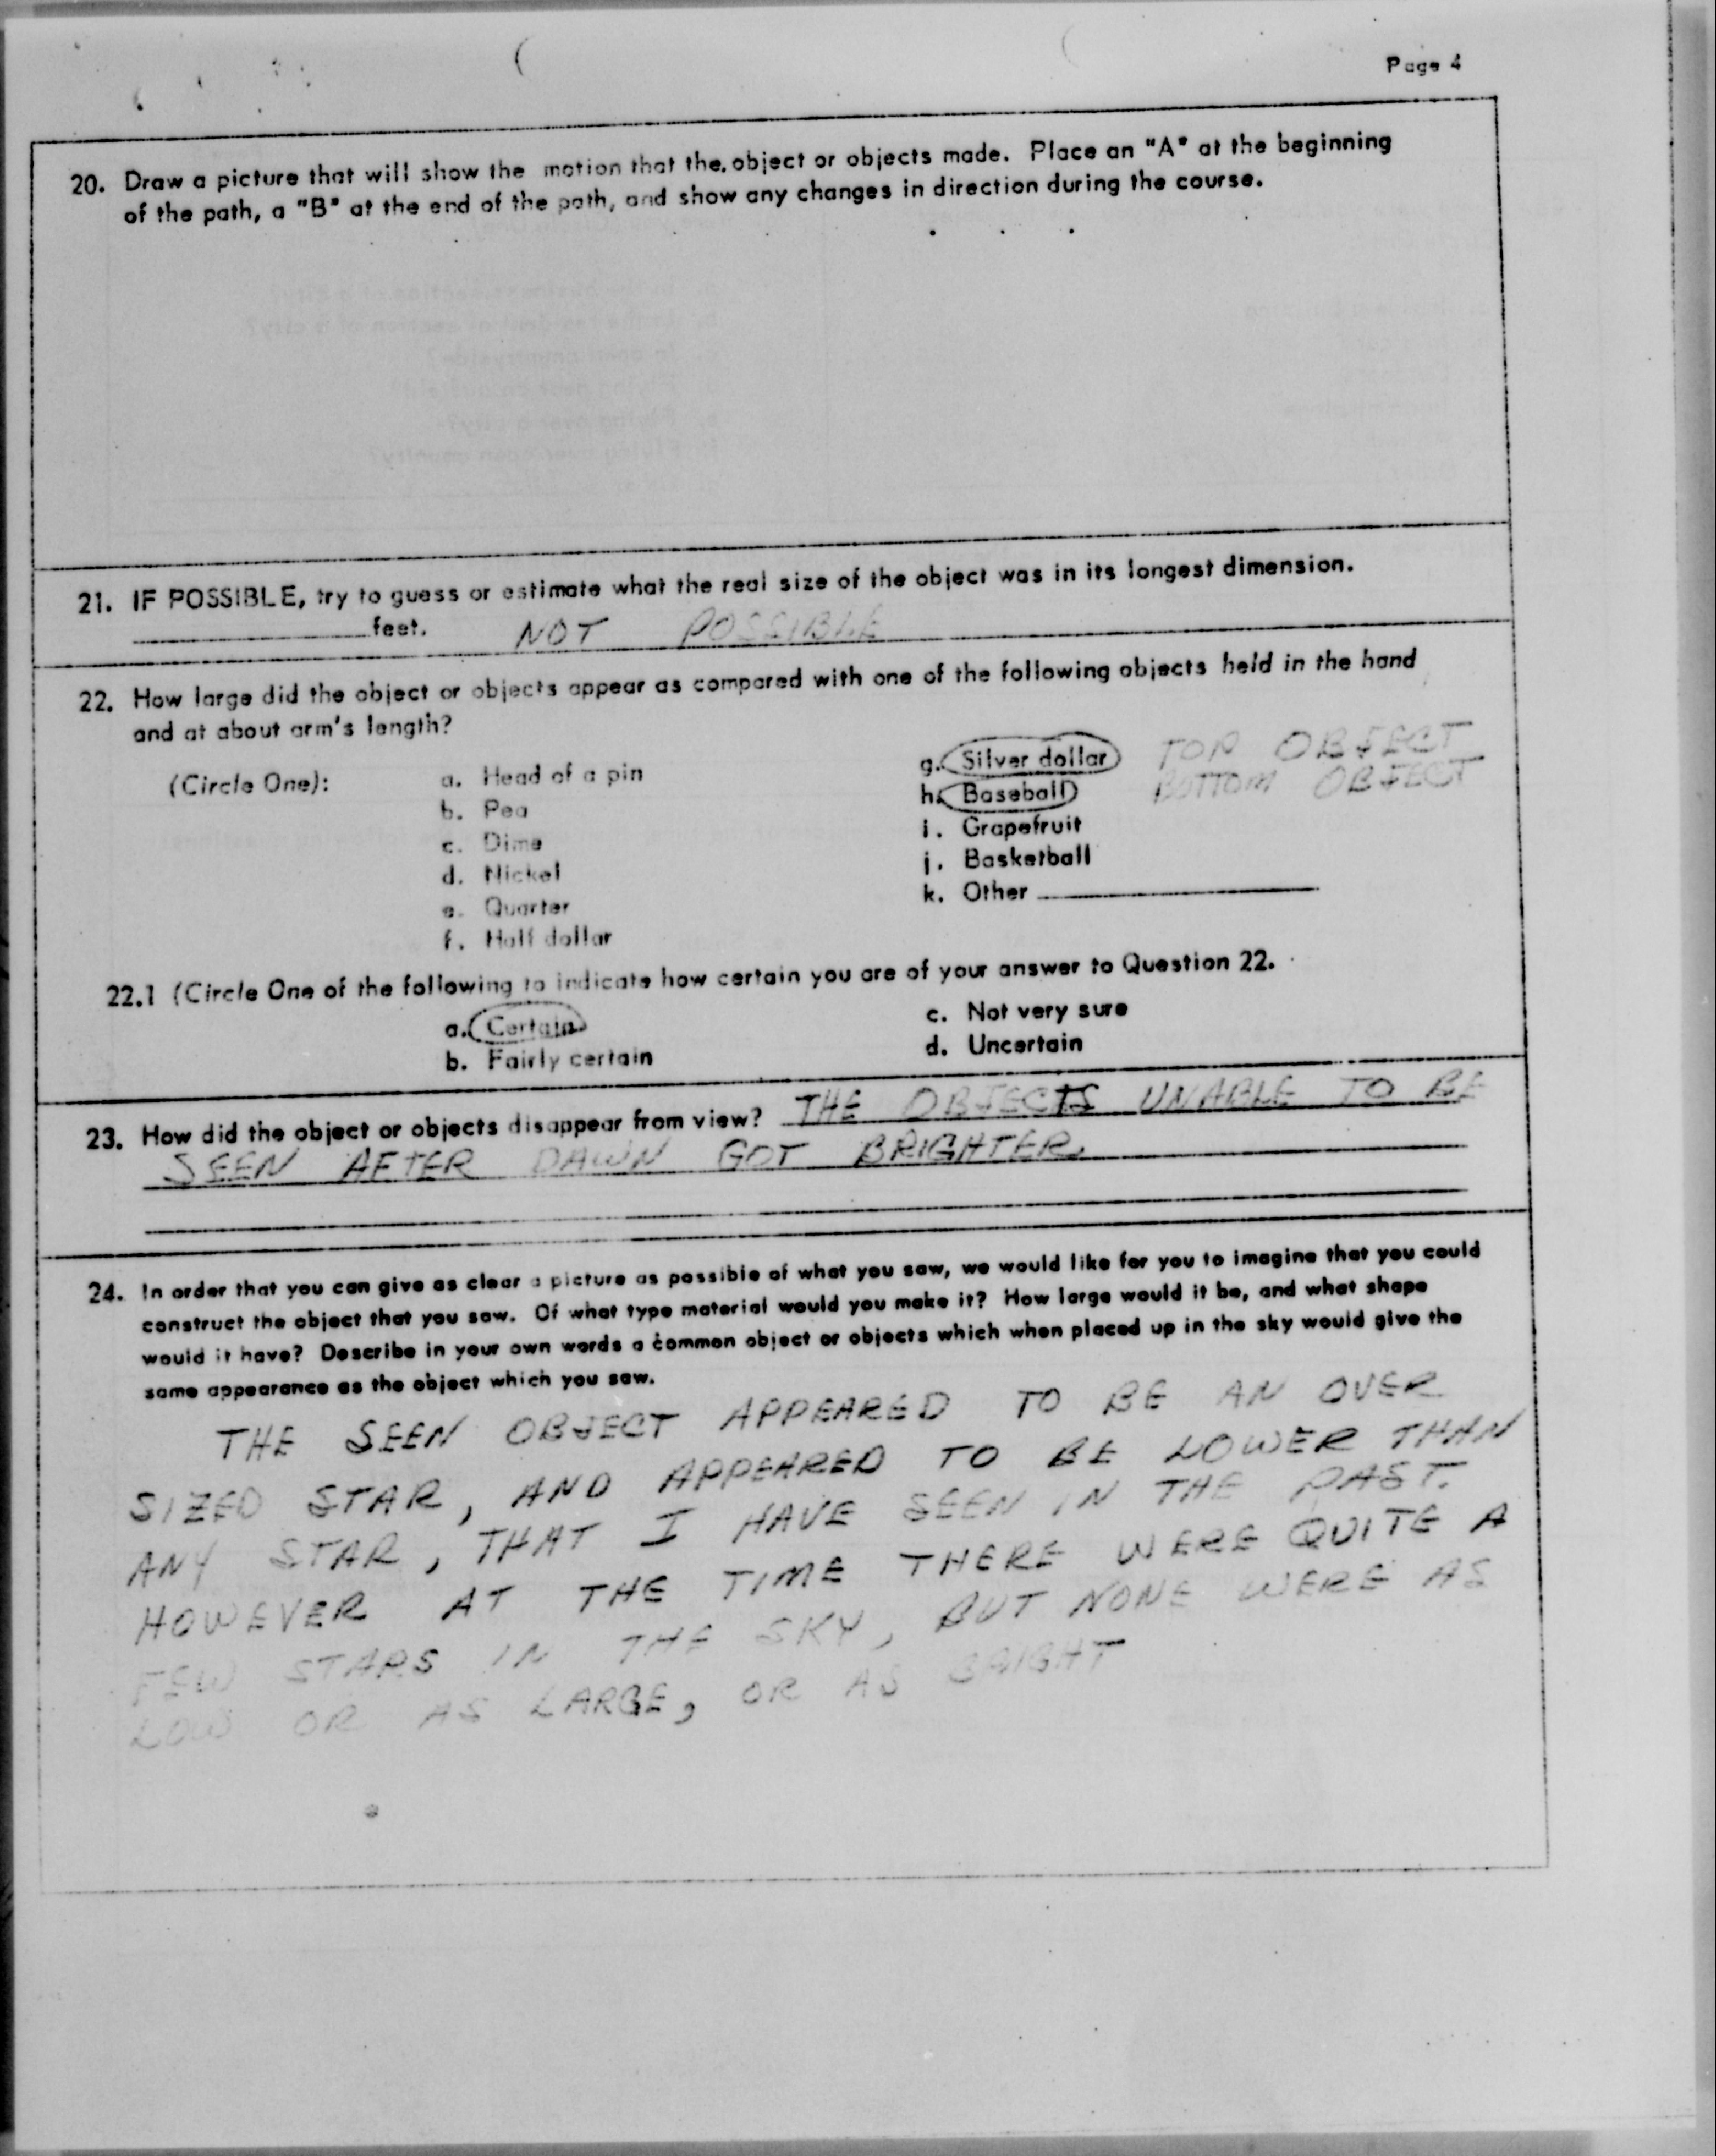 Page 4
20. Draw a picture that will show the motion that the object or objects made. Place an "A" at the beginning
of the path, a "B" at the end of the path, and show any changes in direction during the course.
21. IF POSSIBLE, try to guess or estimate what the real size of the object was in its longest dimension.
____________ feet. NOT POSSIBLE
22. How large did the object or objects appear as compared with one of the following objects held in the hand
and at about arm's length?
(Circle One):
a. Head of a pin
b. Pea
c. Dime
d. Nickel
e. Quarter
f. Half dollar
g. Silver dollar TOP OBJECT
h. Baseball BOTTOM OBJECT
i. Grapefruit
j. Basketball
k. Other ____________
22.1 (Circle One of the following to indicate how certain you are of your answer to Question 22.
a. Certain
b. Fairly certain
c. Not very sure
d. Uncertain
23. How did the object or objects disappear from view? THE OBJECTS UNABLE TO BE
SEEN AFTER DAWN GOT BRIGHTER.
24. In order that you can give as clear a picture as possible of what you saw, we would like for you to imagine that you could
construct the object that you saw. Of what type material would you make it? How large would it be, and what shape
would it have? Describe in your own words a common object or objects which when placed up in the sky would give the
same appearance as the object which you saw.
THE SEEN OBJECT APPEARED TO BE AN OVER
SIZED STAR, AND APPEARED TO BE LOWER THAN
ANY STAR, THAT I HAVE SEEN IN THE PAST.
HOWEVER AT THE TIME THERE WERE QUITE A
FEW STARS IN THE SKY, BUT NONE WERE AS
LOW OR AS LARGE, OR AS BRIGHT